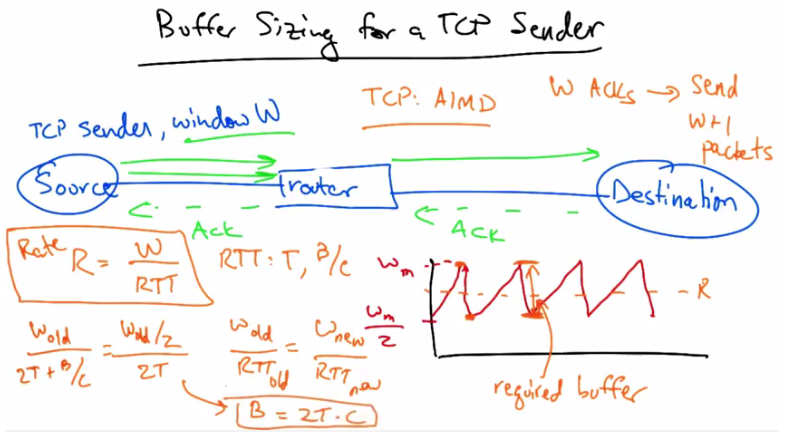 Buffer Sizing for a TCP Sender
TCP: AIMD
W ACKs → Send
W+1
packets
TCP sender, window W
Source
router
Destination
Ack
ACK
Rate R = W/RTT
RTT: T, B/C
Wold/(2T + B/C) = (Wold/2)/2T
Wold/RTTold = Wnew/RTTnew
B = 2T·C
Wm
Wm/2
R
required buffer